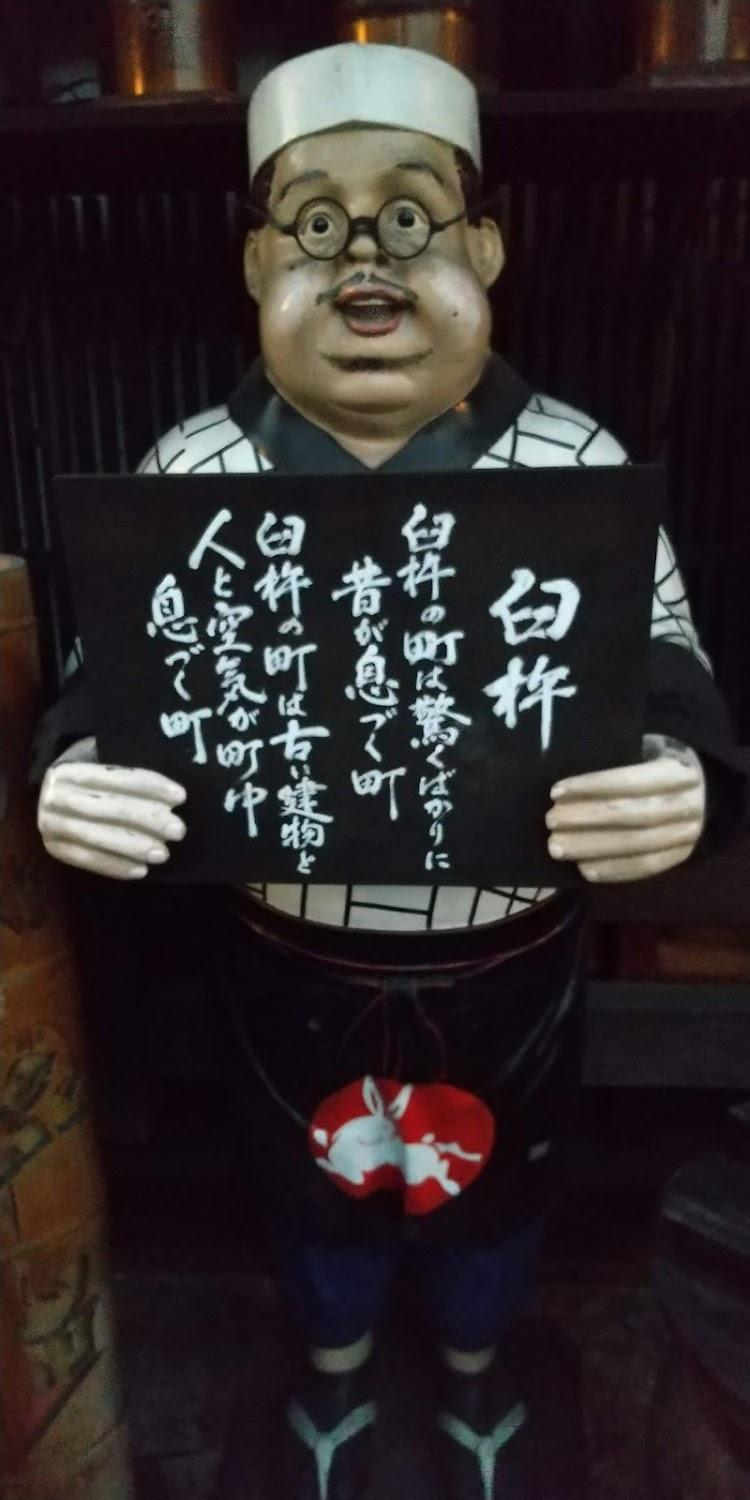 臼杵
臼杵の町は驚くばかりに
昔が息づく町
臼杵の町は古い建物と
人と空気が町中
息づく町